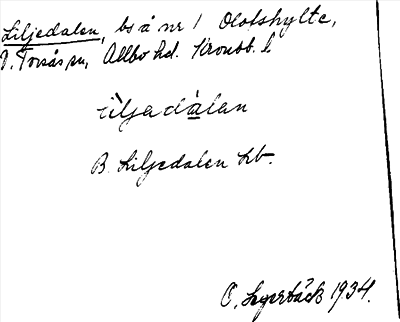 Liljedalen, bs å nr 1 Olofshylte,
V. Torsås sn, Allbo hd. Kronob. l
liljadàlan
B. Liljedalen kb.
O. Lagerbäck 1934.